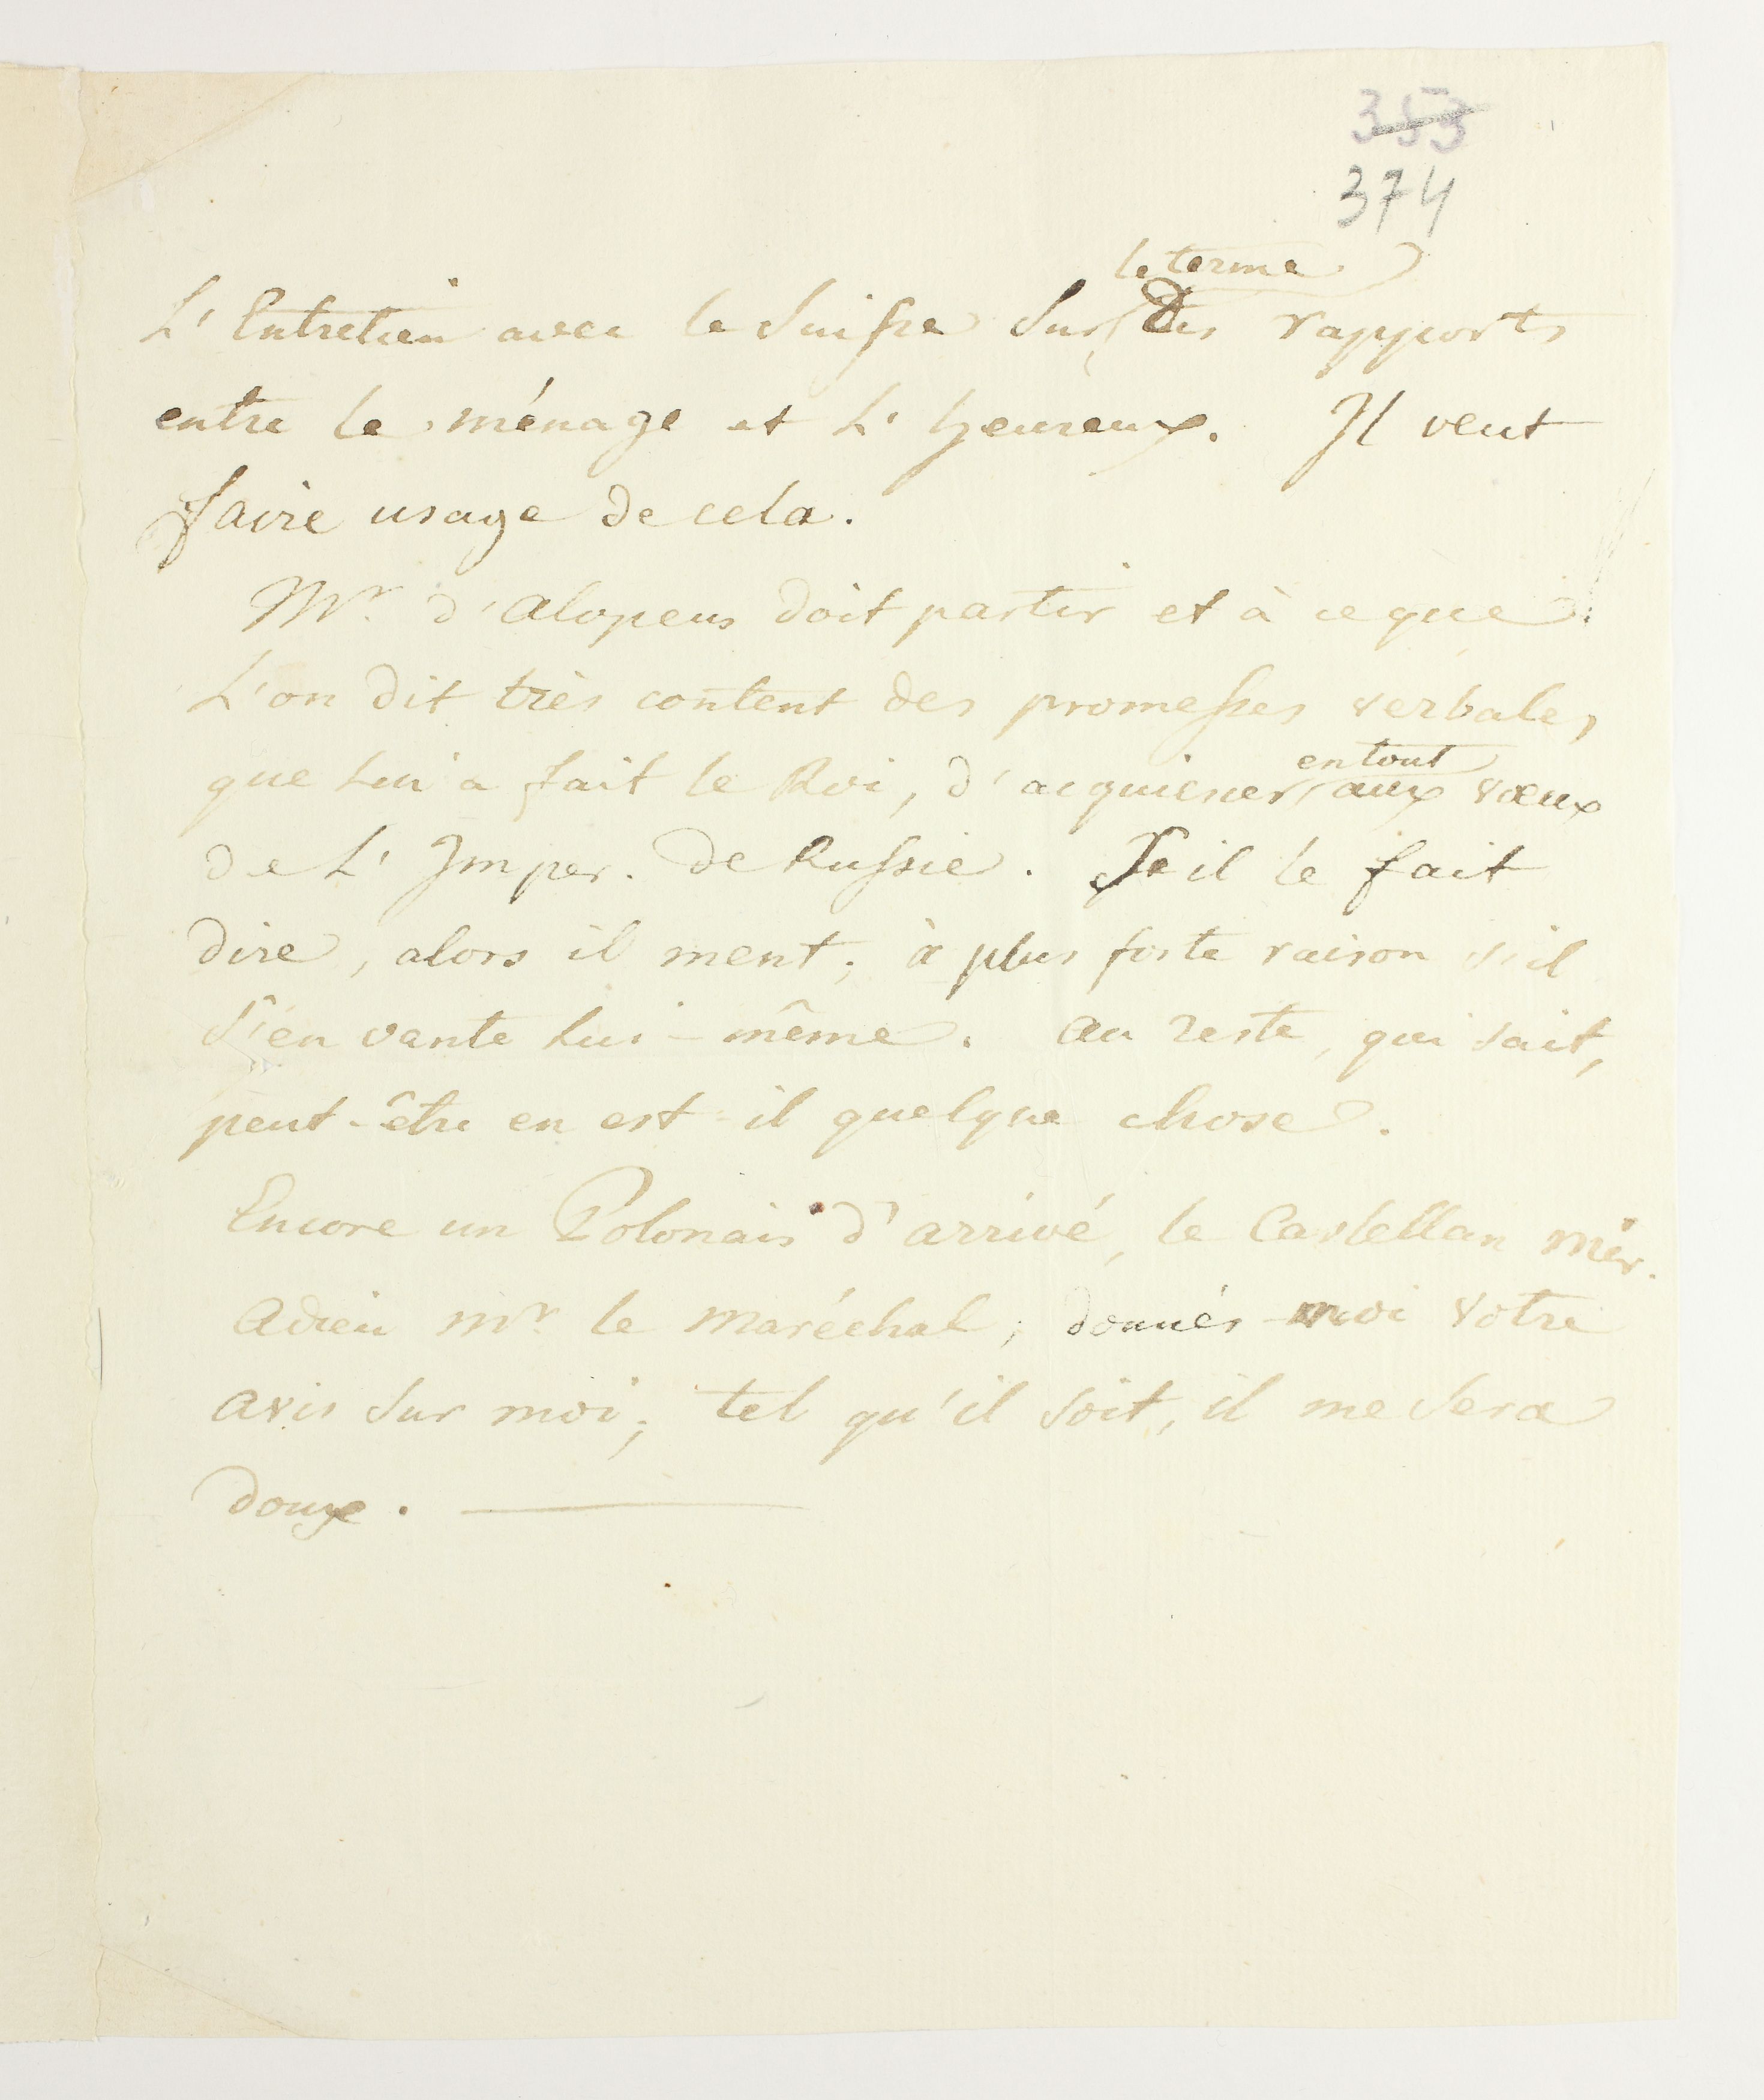 353
374
le terme
L'Entretien avec le Suisse sur des rapports
entre le ménage et L'heureux. Il veut
faire usage de cela.
Mr. d'Alopeus doit partir et à ce que
L'on dit très content des promesses verbales
que Lui a fait le Roi, d'acquiescer aux vœux
en tout
de L'Imper. de Russie. Se il le fait
dire, alors il ment; à plus forte raison s'il
s'en vante Lui-même. Au reste, qui sait,
peut-être en est-il quelque chose.
Encore un Polonais d'arrivé, le Castellan Mier.
Adieu Mr. le Maréchal; donnés-moi votre
avis sur moi; tel qu'il soit, il me sera
doux.